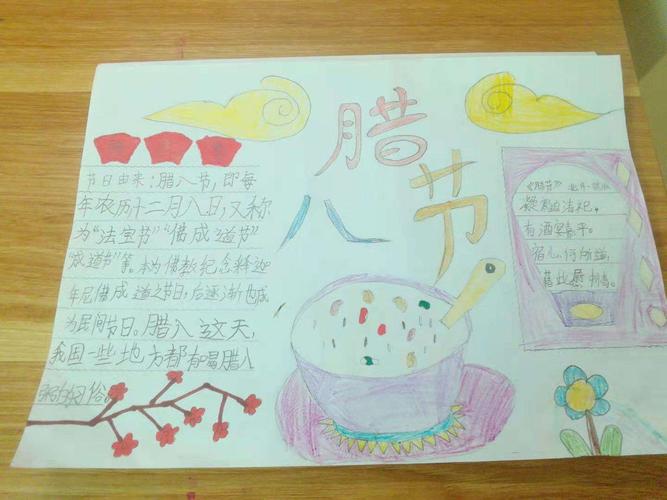 腊
八
节
节日由来:腊八节,即每
年农历十二月八日,又称
为“法宝节”“佛成道节”
“成道节”等。本为佛教纪念释迦
牟尼佛成道之节日,后逐渐也成
为民间节日。腊八这天,
我国一些地方都有喝腊八
粥的习俗。
《腊节》北齐·魏收
凝寒迫清祀,
有酒宴嘉平。
宿心何所道,
藉此慰